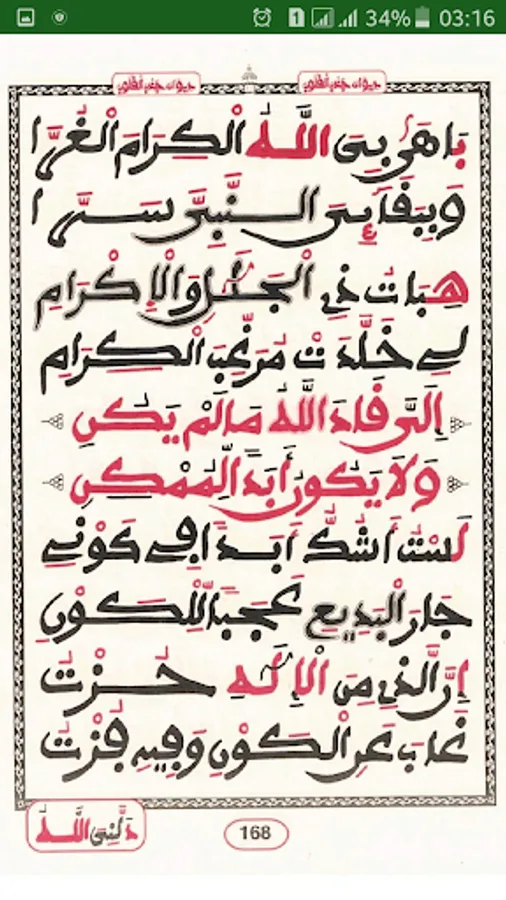 34% 03:16
ديوان جذب القلوب ديوان جذب القلوب
بَاهَى بِىَ اللَّهُ الْكِرَامَ الْغُرَّا
وَبِبَقَائِىَ النَّبِىَّ سَرَّا
هِبَاتُ ذِى الْجَلَلِ وَالْإِكْرَامِ
لِى خَلَّدَتْ مَرْغَبَ الْكِرَامِ
إِلَىَّ قَادَ اللَّهُ مَالَمْ يَكُنِ
وَلَا يَكُونُ أَبَدًا لِمُمْكِنِ
لَسْتُ أَشُكُّ أَبَدًا فِى كَوْنِى
جَارَ الْبَدِيعِ عَجَبًا لِلْكَوْنِ
إِنَّ الَّذِى مِنَ الْإِلَهِ حُزْتُ
غَابَ عَنِ الْكَوْنِ وَفِيهِ فُزْتُ
168
دَلَّنِىَ اللَّهُ